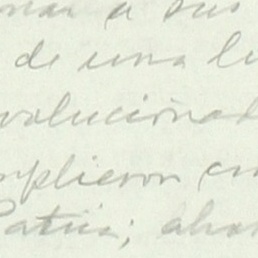 a sus
de una lu
volucionad
mplieron con
Patria; ahor